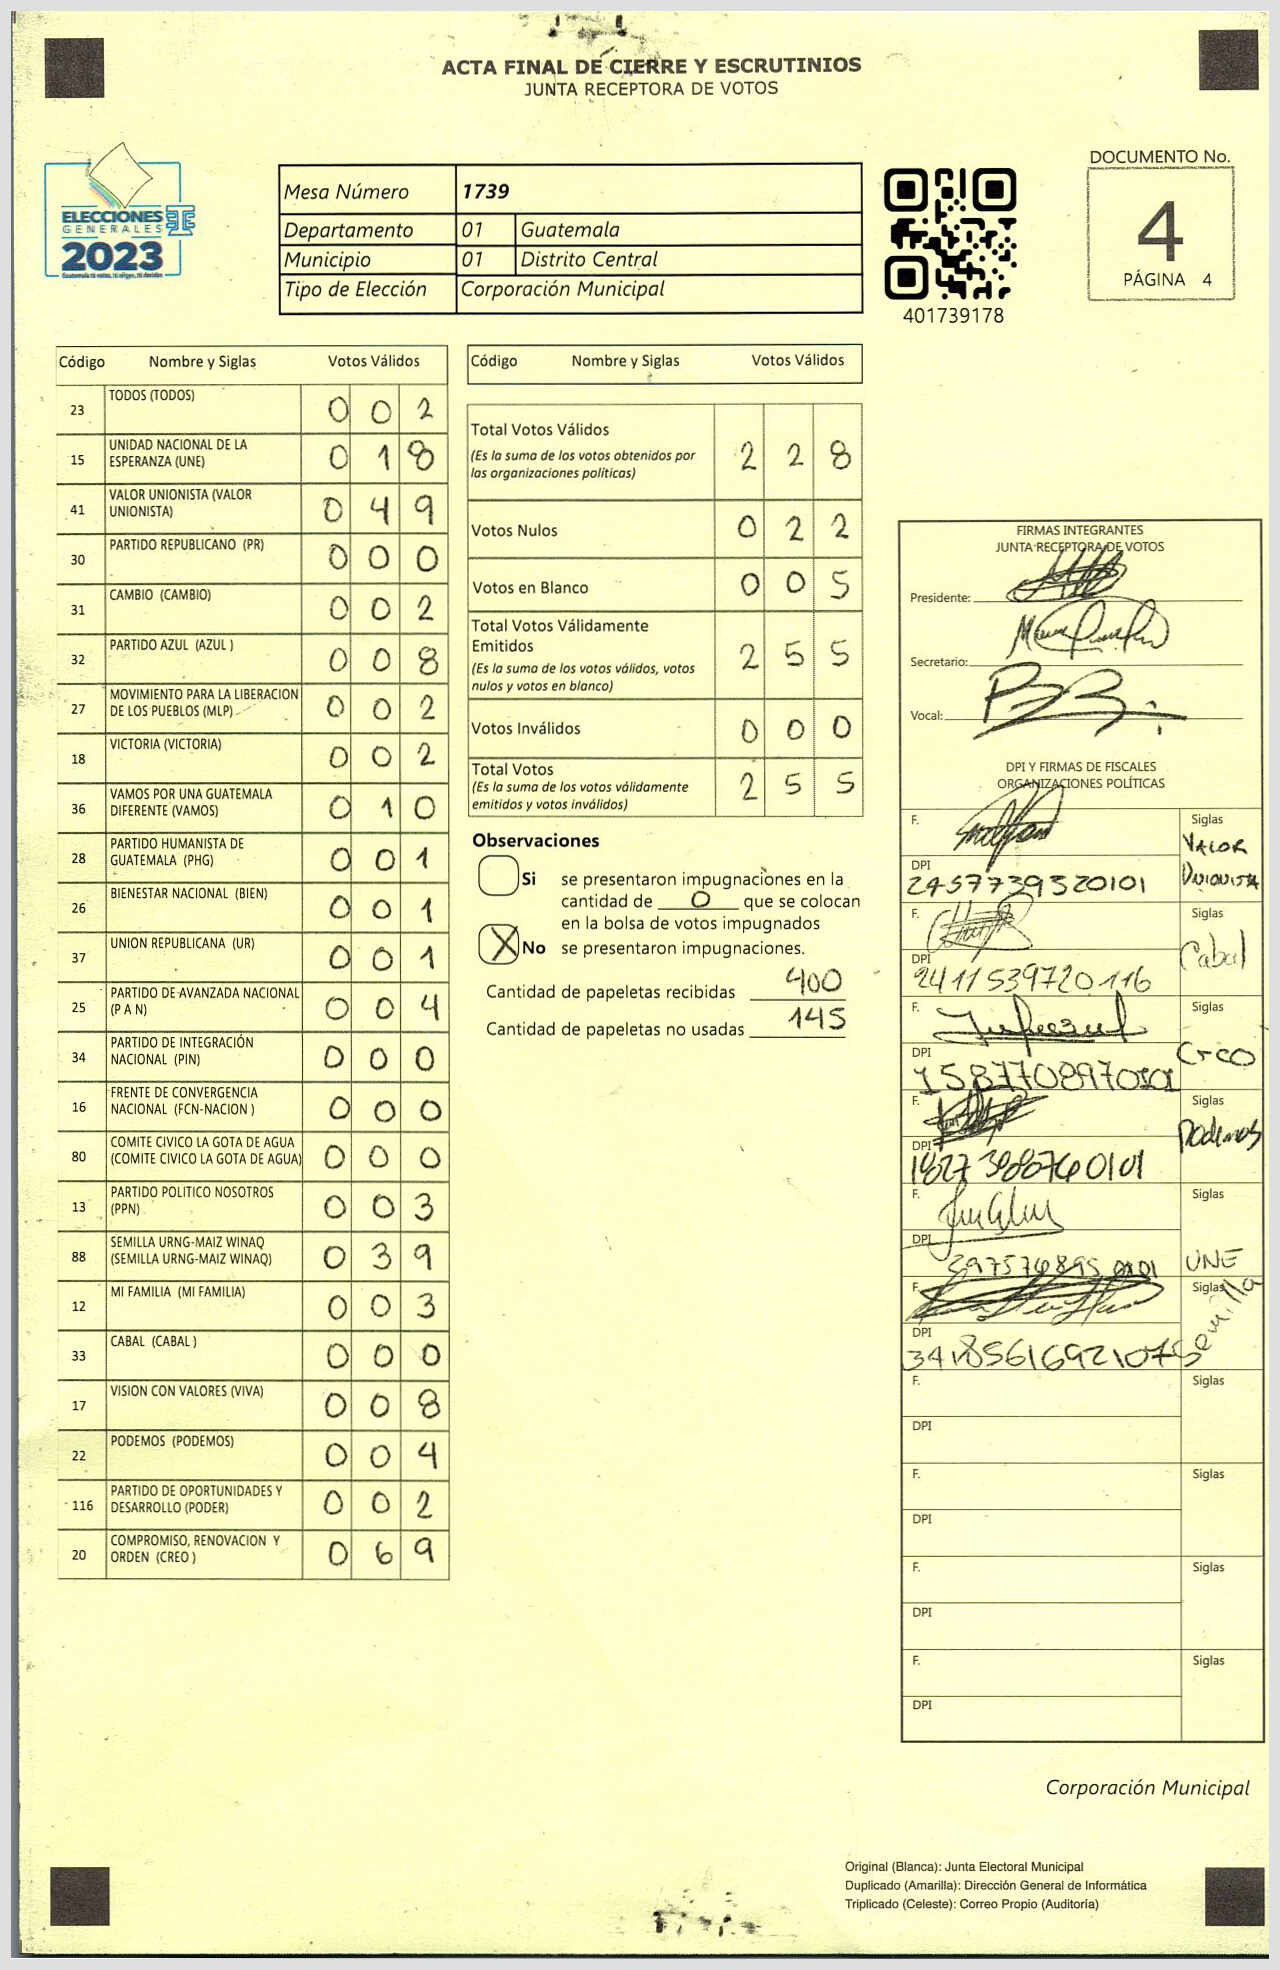 ACTA FINAL DE CIERRE Y ESCRUTINIOS
JUNTA RECEPTORA DE VOTOS
ELECCIONES
GENERALES
2023
Guatemala tú votas, tú eliges, tú decides
Mesa Número 1739
Departamento 01 Guatemala
Municipio 01 Distrito Central
Tipo de Elección Corporación Municipal
401739178
DOCUMENTO No.
4
PÁGINA 4
Código Nombre y Siglas Votos Válidos
23 TODOS (TODOS) 0 0 2
15 UNIDAD NACIONAL DE LA ESPERANZA (UNE) 0 1 8
41 VALOR UNIONISTA (VALOR UNIONISTA) 0 4 9
30 PARTIDO REPUBLICANO (PR) 0 0 0
31 CAMBIO (CAMBIO) 0 0 2
32 PARTIDO AZUL (AZUL ) 0 0 8
27 MOVIMIENTO PARA LA LIBERACION DE LOS PUEBLOS (MLP) 0 0 2
18 VICTORIA (VICTORIA) 0 0 2
36 VAMOS POR UNA GUATEMALA DIFERENTE (VAMOS) 0 1 0
28 PARTIDO HUMANISTA DE GUATEMALA (PHG) 0 0 1
26 BIENESTAR NACIONAL (BIEN) 0 0 1
37 UNION REPUBLICANA (UR) 0 0 1
25 PARTIDO DE AVANZADA NACIONAL (P A N) 0 0 4
34 PARTIDO DE INTEGRACIÓN NACIONAL (PIN) 0 0 0
16 FRENTE DE CONVERGENCIA NACIONAL (FCN-NACION ) 0 0 0
80 COMITE CIVICO LA GOTA DE AGUA (COMITE CIVICO LA GOTA DE AGUA) 0 0 0
13 PARTIDO POLITICO NOSOTROS (PPN) 0 0 3
88 SEMILLA URNG-MAIZ WINAQ (SEMILLA URNG-MAIZ WINAQ) 0 3 9
12 MI FAMILIA (MI FAMILIA) 0 0 3
33 CABAL (CABAL ) 0 0 0
17 VISION CON VALORES (VIVA) 0 0 8
22 PODEMOS (PODEMOS) 0 0 4
116 PARTIDO DE OPORTUNIDADES Y DESARROLLO (PODER) 0 0 2
20 COMPROMISO, RENOVACION Y ORDEN (CREO ) 0 6 9
Código Nombre y Siglas Votos Válidos
Total Votos Válidos 2 2 8
(Es la suma de los votos obtenidos por
las organizaciones políticas)
Votos Nulos 0 2 2
Votos en Blanco 0 0 5
Total Votos Válidamente
Emitidos 2 5 5
(Es la suma de los votos válidos, votos
nulos y votos en blanco)
Votos Inválidos 0 0 0
Total Votos 2 5 5
(Es la suma de los votos válidamente
emitidos y votos inválidos)
Observaciones
Si se presentaron impugnaciones en la
cantidad de 0 que se colocan
en la bolsa de votos impugnados
X No se presentaron impugnaciones.
Cantidad de papeletas recibidas 400
Cantidad de papeletas no usadas 145
FIRMAS INTEGRANTES
JUNTA RECEPTORA DE VOTOS
Presidente:
Secretario:
Vocal:
DPI Y FIRMAS DE FISCALES
ORGANIZACIONES POLÍTICAS
F. Siglas VALOR UNIONISTA
DPI 2457739320101
F. Siglas Cabal
DPI 2411539720116
F. Siglas
DPI
F. Siglas Podemos
DPI
F. Siglas UNE
DPI
F. Siglas Semilla
DPI
F. Siglas
DPI
F. Siglas
DPI
F. Siglas
DPI
F. Siglas
DPI
Corporación Municipal
Original (Blanca): Junta Electoral Municipal
Duplicado (Amarilla): Dirección General de Informática
Triplicado (Celeste): Correo Propio (Auditoría)